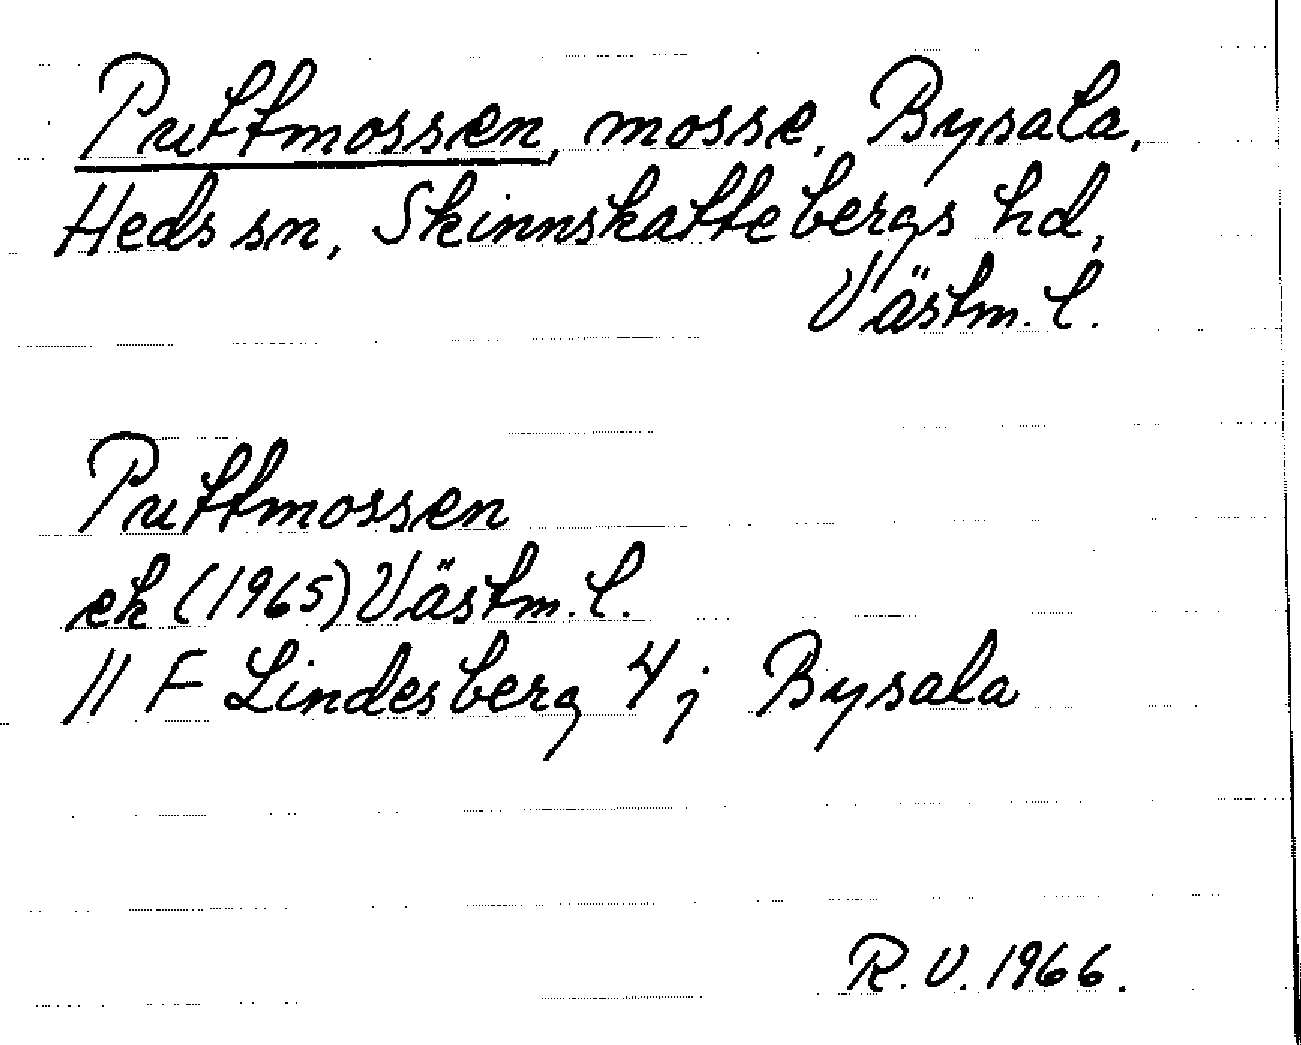 Puttmossen, mosse, Bysala,
Heds sn, Skinnskattebergs hd,
Västm. l.
Puttmossen
ek (1965) Västm. l.
// F Lindesberg 4 j Bysala
R. V. 1966.